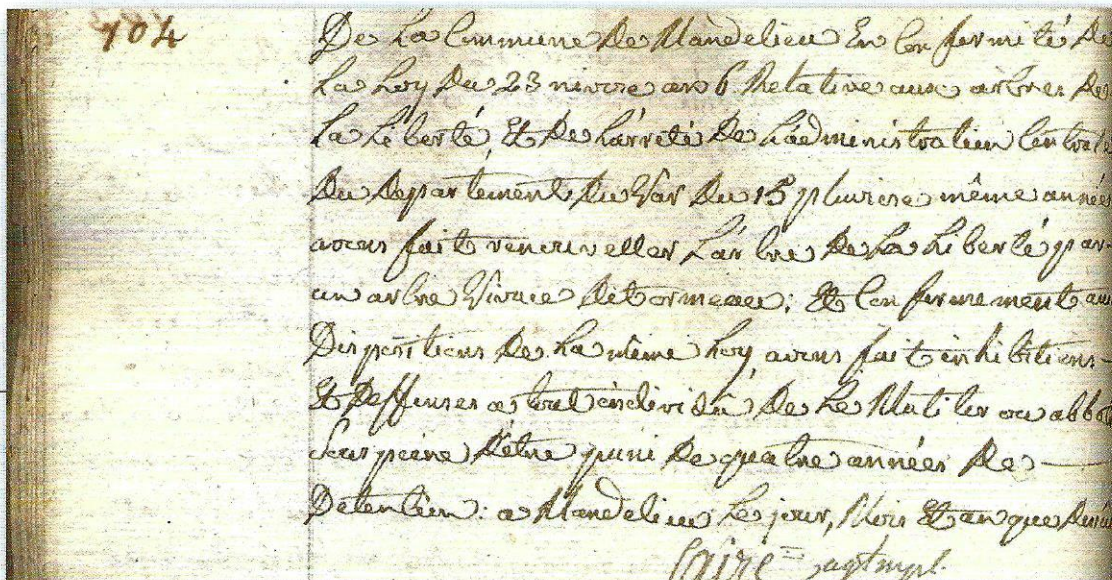 104
De La Commune De Mandelieu En Conformité De
La Loy Du 23 nivose an 6 Relative aux arbres De
La Liberté, Et De L'arreté De L'administration Centrale
Du Departement Du Var Du 15 pluviose même année
avons fait renouveller L'arbre De La Liberté par
un arbre Vivace Dit ormeau; Et Conformement aux
Dispositions De La même Loy, avons fait inhibitions
Et Deffenses a tout individu De Le Mutiler ou abba
Sous peine D'être puni De quatre années De
Detention: a Mandelieu Le jour, Mois Et an que Dessus
Caire = agt mpl.